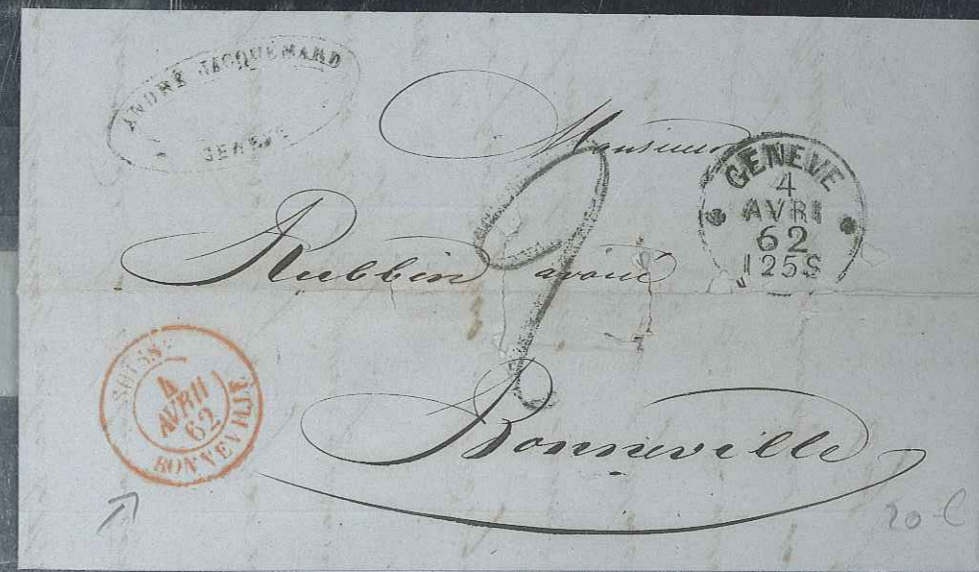 ANDRÉ JACQUEMARD
GENEVE
Monsieur
GENEVE
4
AVRI
62
125S
Rubbin avoué
SUISSE
4
AVRIL
62
BONNEVILLE
Bonneville
20-